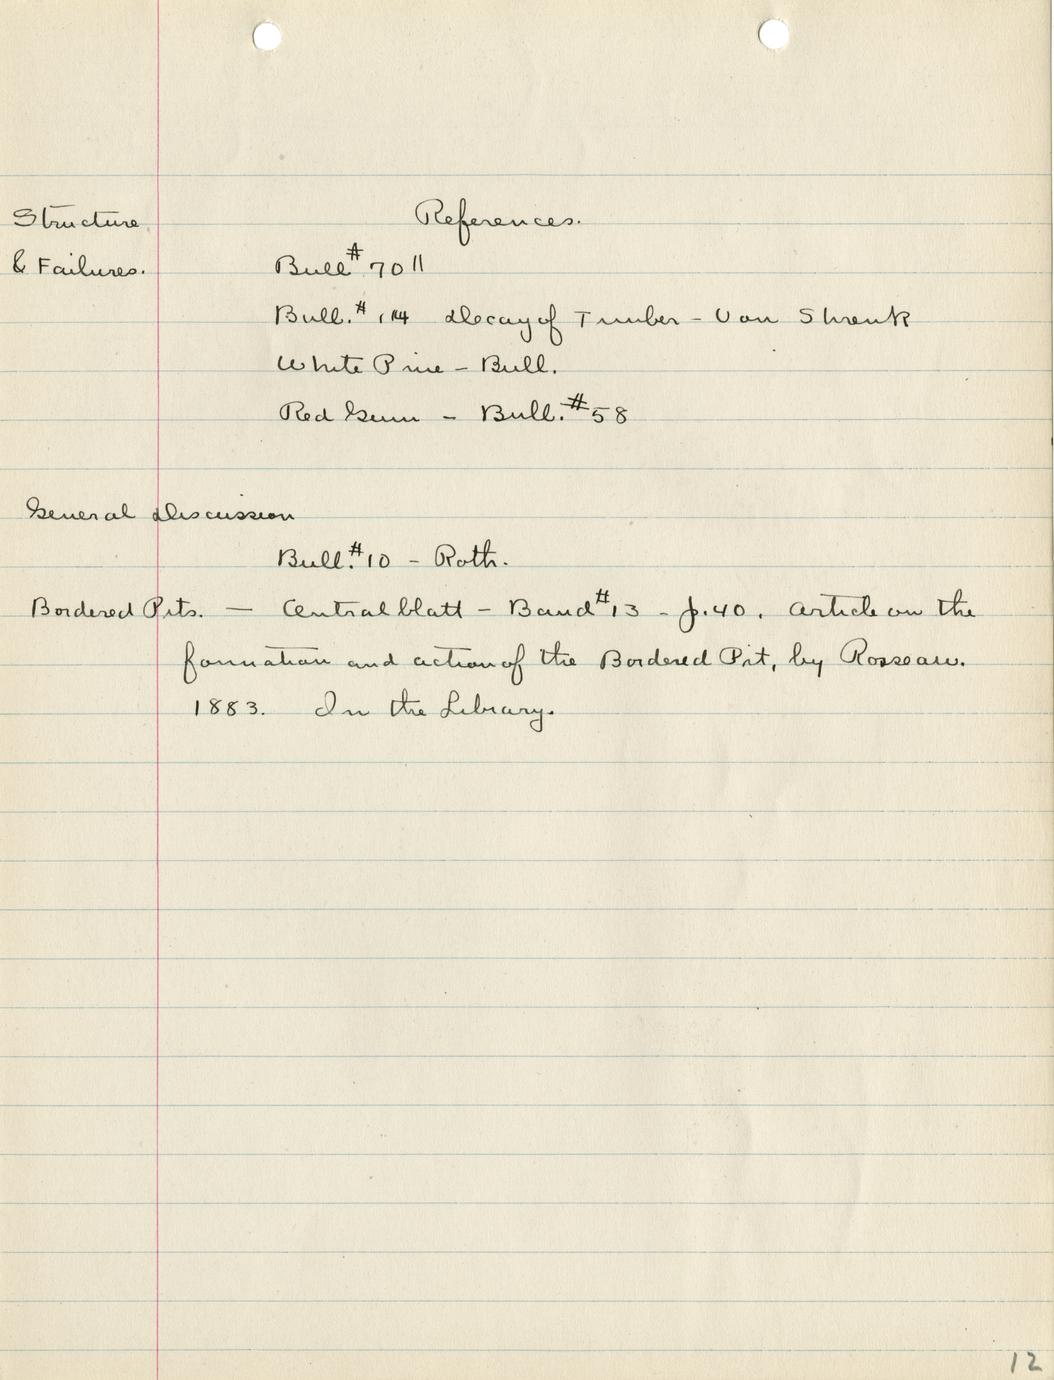 References.
Structure
& Failures.
Bull # 70 11
Bull. # 114 Decay of Timber - Von Shrenk
White Pine - Bull.
Red Gum - Bull. # 58
General Discussion
Bull. # 10 - Roth.
Bordered Pits. — Centralblatt - Band # 13 - p. 40. Article on the
formation and action of the Bordered Pit, by Rosseau.
1883. In the Library.
12